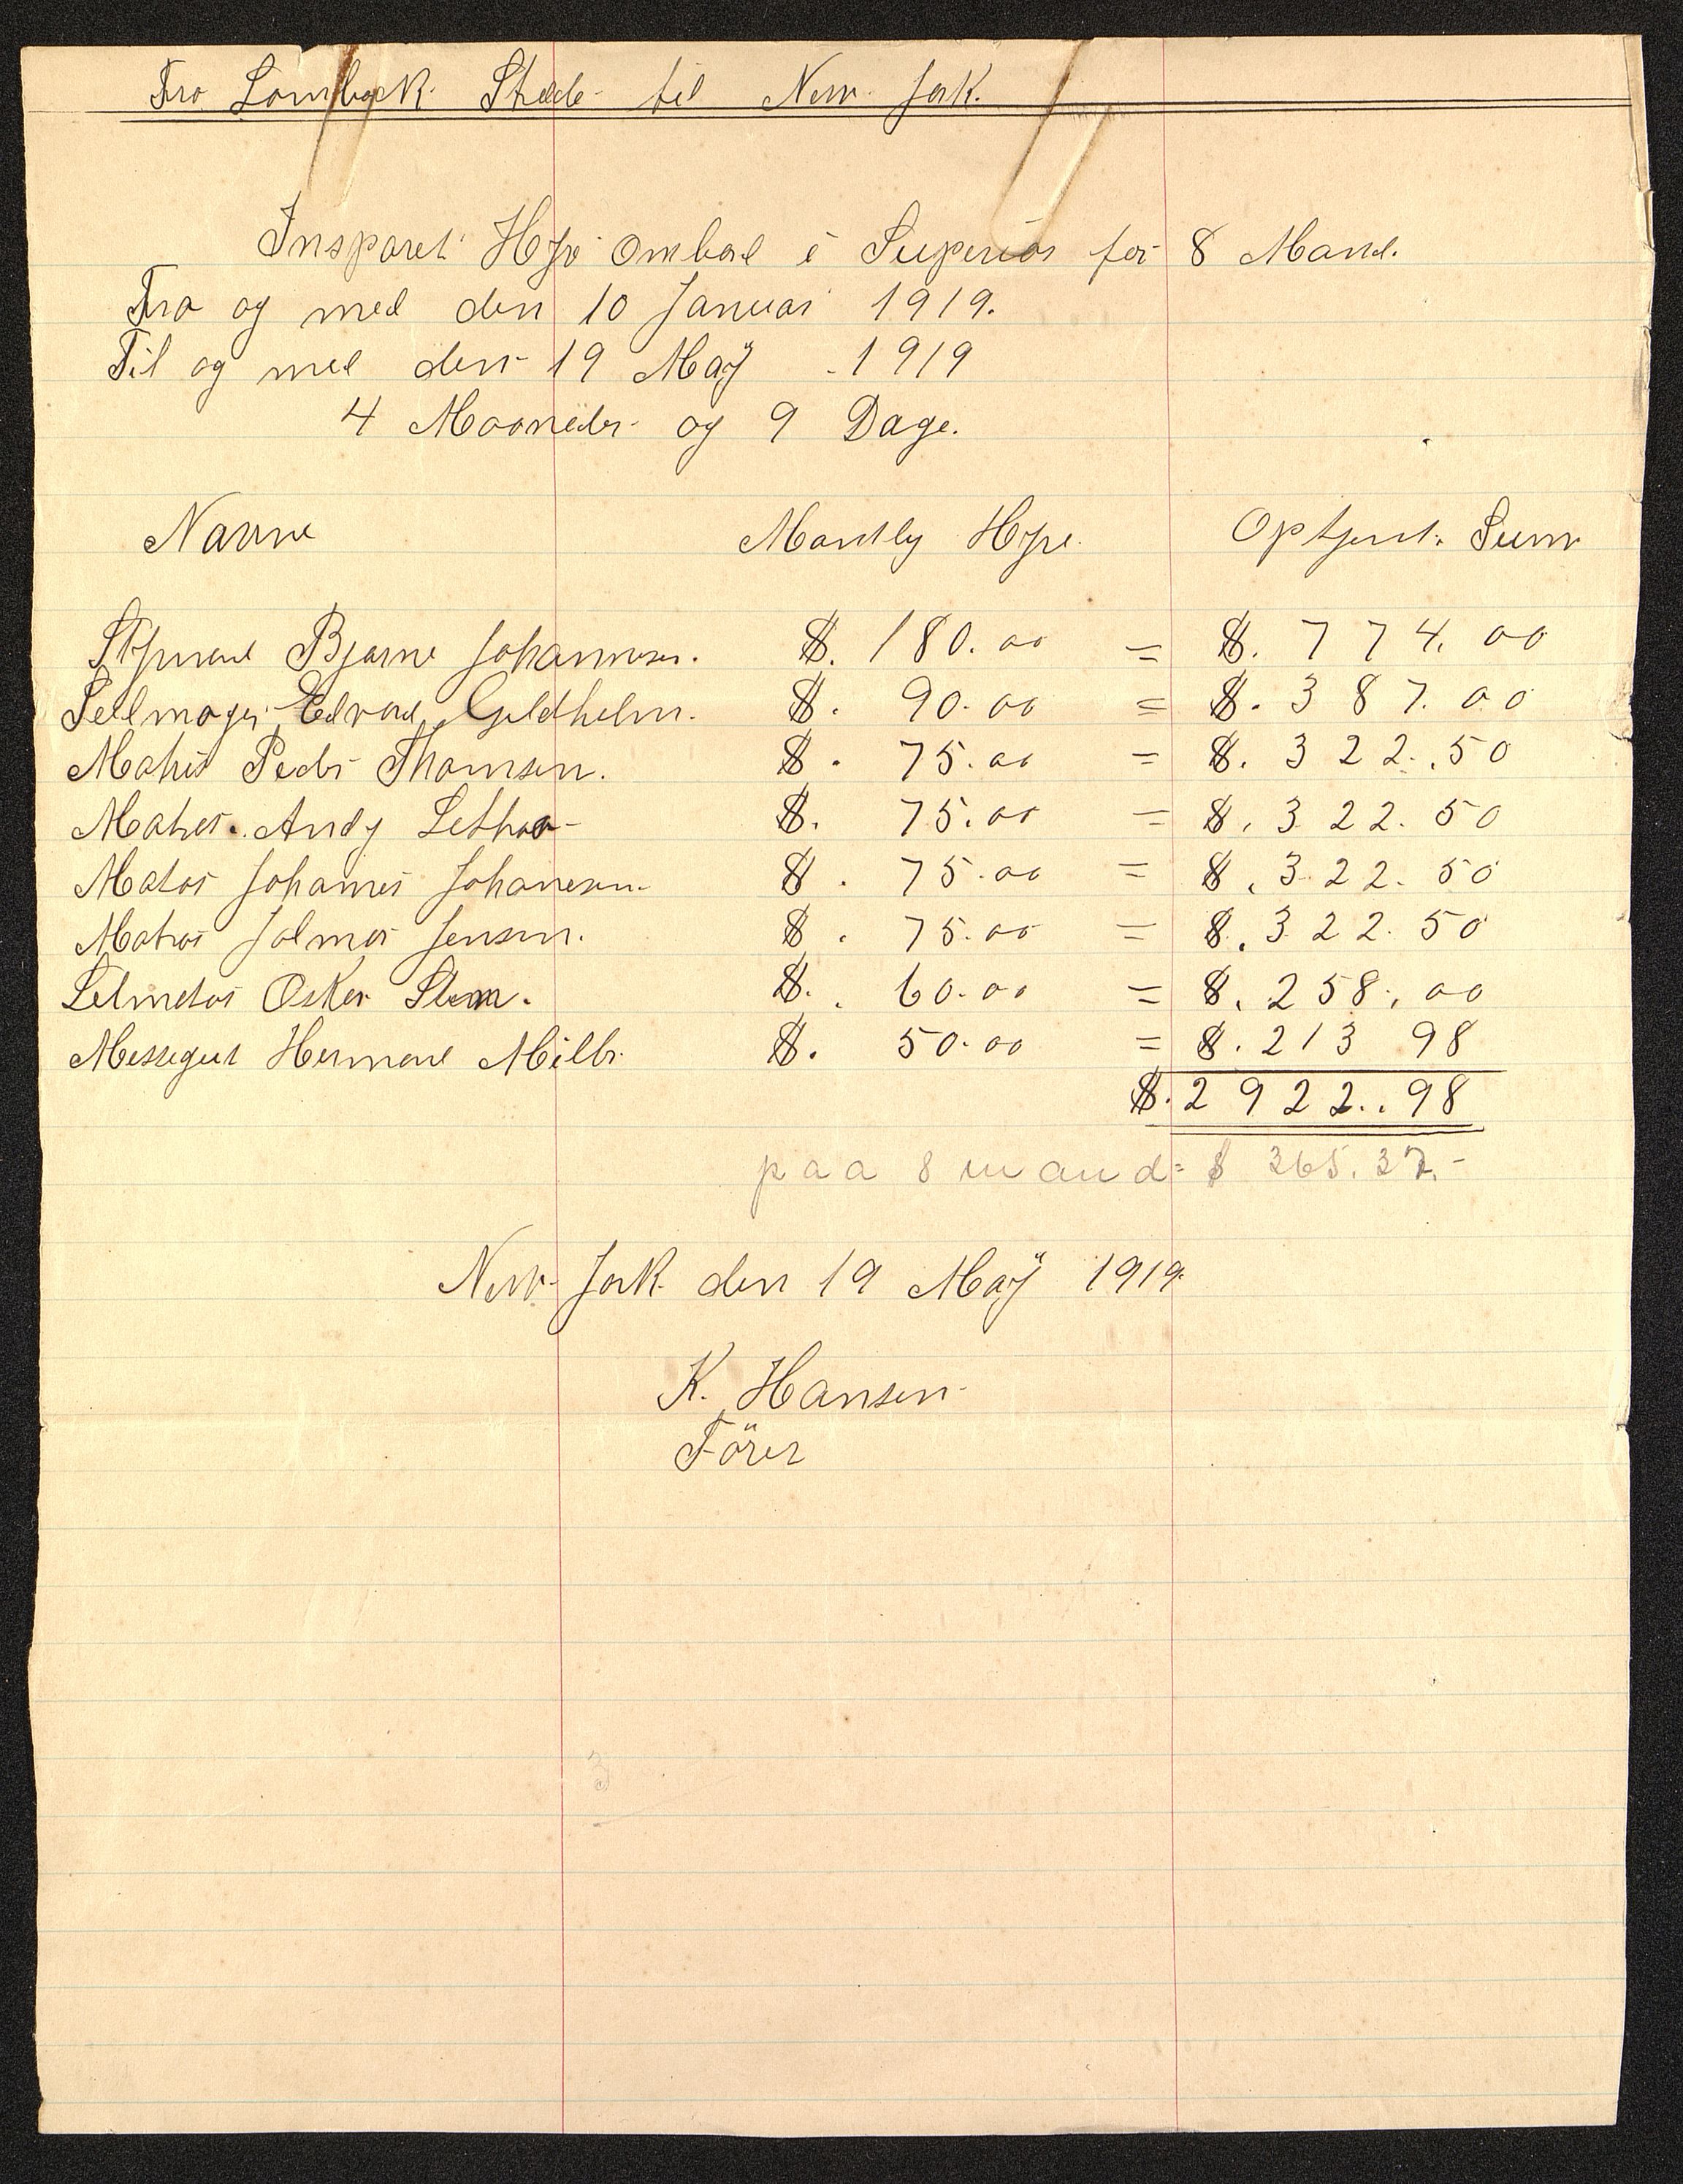 Fra Lombock Strede til New Jork.
Insparet Hyre Ombord i Superior for 8 Mand.
Fra og med den 10 Januar 1919.
Til og med den 19 Maÿ 1919
4 Maaneder og 9 Dage.
Navne Mantly Hyre. Optjent. Sum
Stymand Bjarne Johannesen. $. 180.00 = $. 774.00
Sellmager Edvard Guldholm. $. 90.00 = $. 387.00
Matros Peder Thomsen. $. 75.00 = $. 322.50
Matros. Andy $. 75.00 = $. 322.50
Matros Johannes Johanesen. $. 75.00 = $. 322.50
Matros Jalmar Jensen. $. 75.00 = $. 322.50
Letmatros Oskar $. 60.00 = $. 258.00
Messegut Hermand Miller $. 50.00 = $. 213 98
$. 2922..98
paa 8 mand = $ 365.37.-
New Jork den 19 Maÿ 1919.
K. Hansen
Förer
3